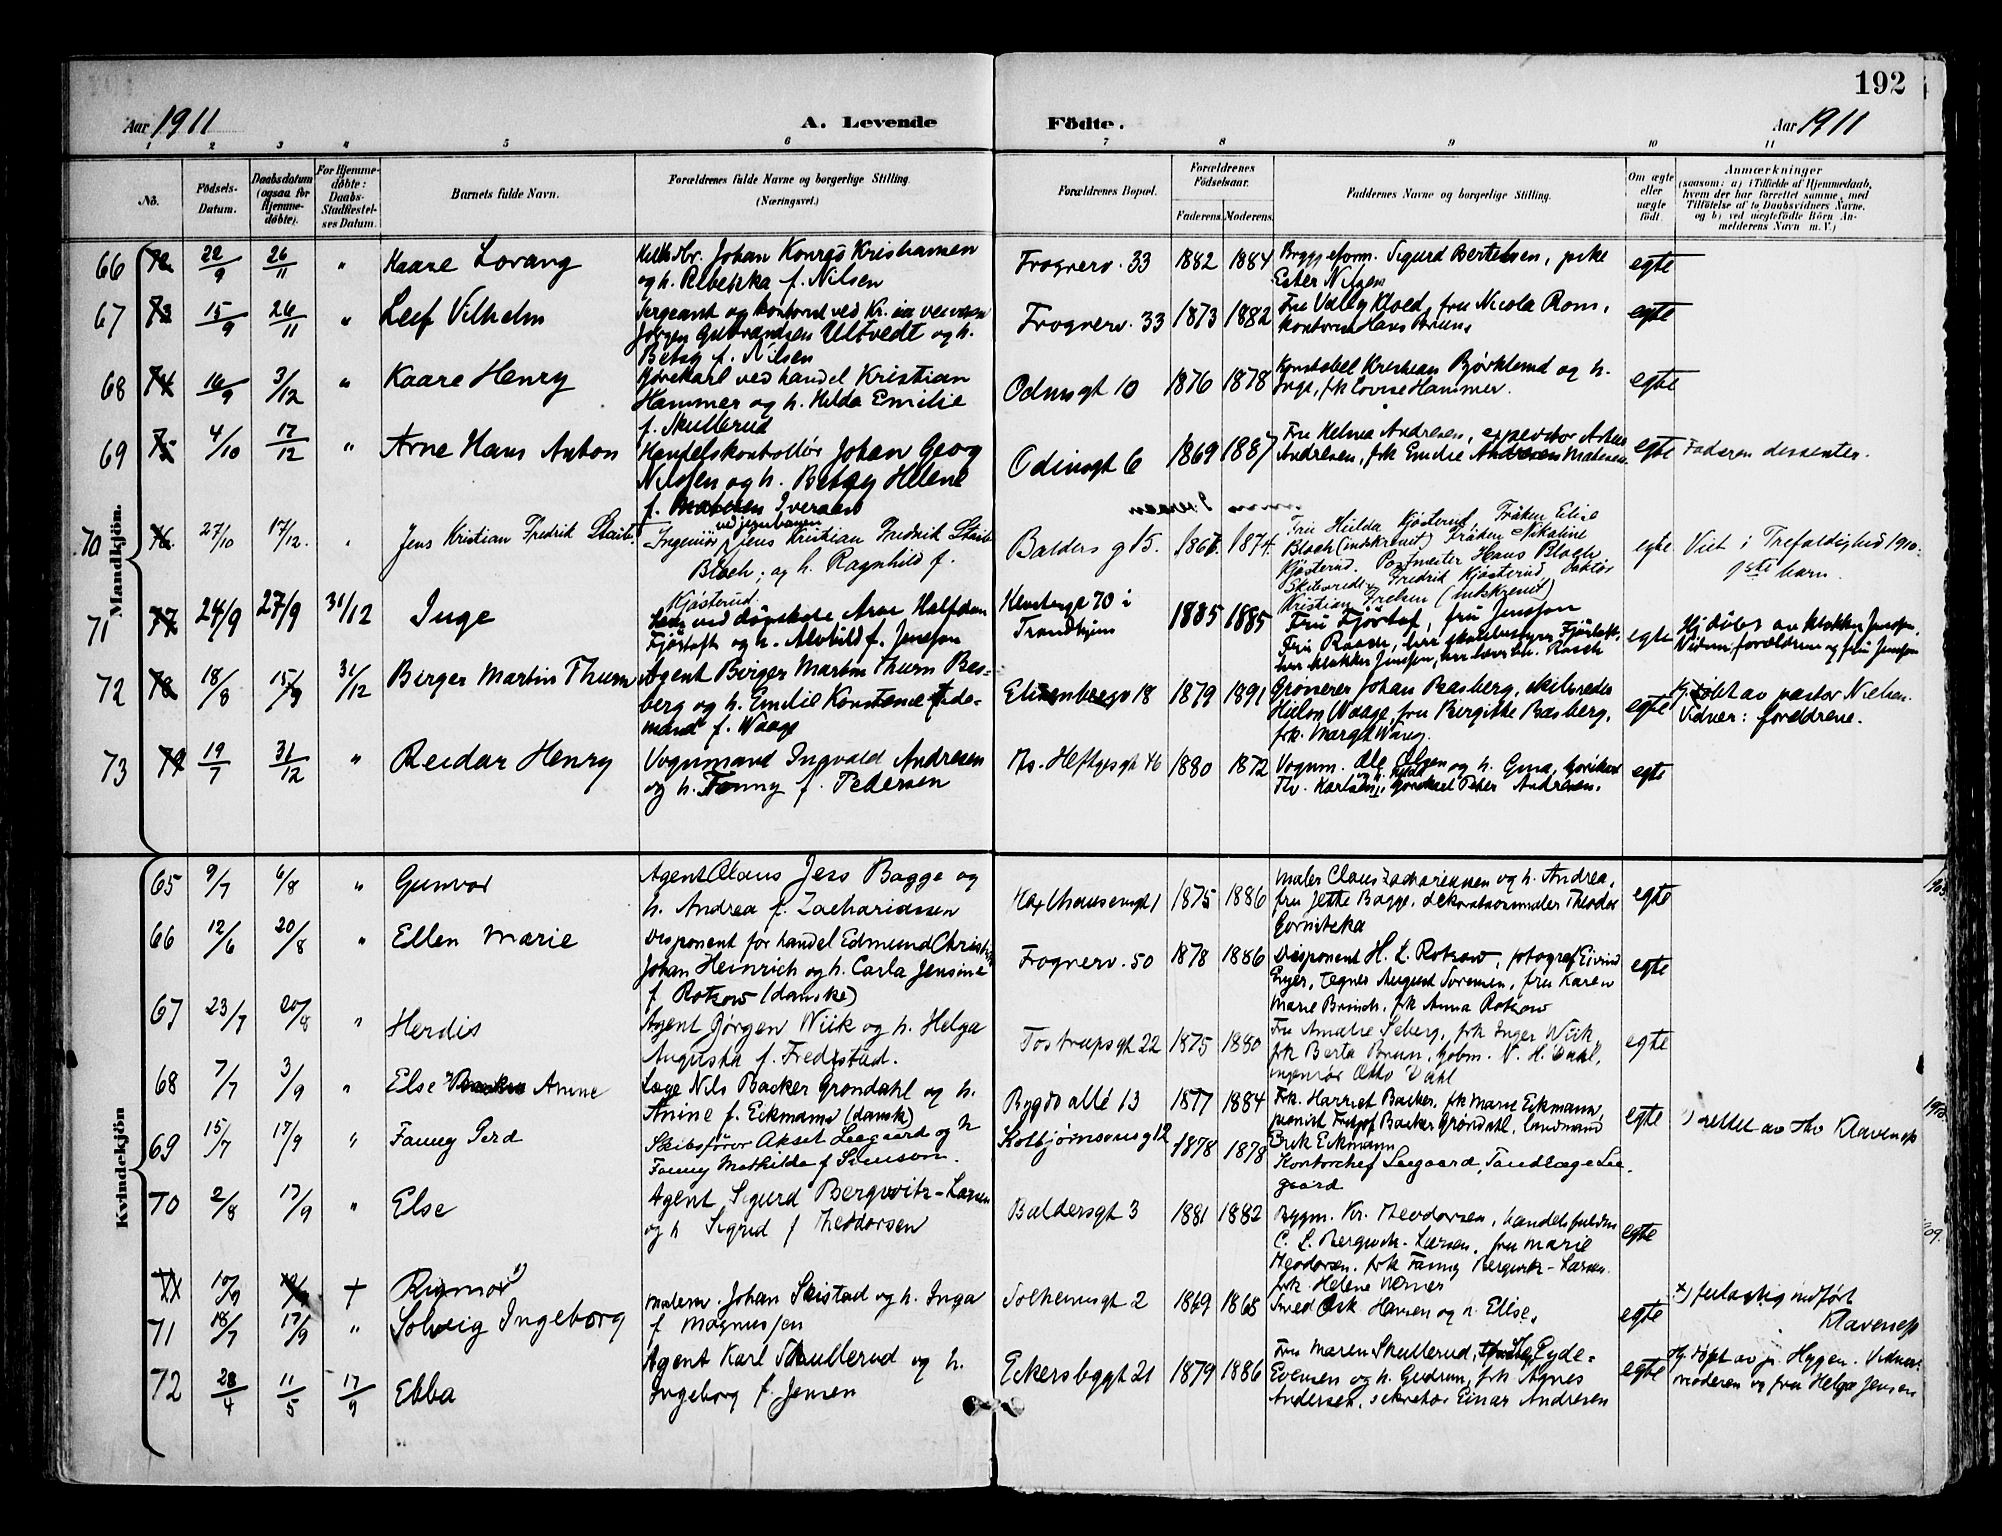 192
Aar 1911
A. Levende
Födte.
Aar 1911
1 2 3 4 5 6 7 8 9 10 11
No.
Födsels-Datum.
Daabsdatum (ogsaa for Hjemme-døbte).
For Hjemme-døbte: Daabs-Stadfæstel-ses Datum.
Barnets fulde Navn.
Forældrenes fulde Navne og borgerlige Stilling. (Næringsvei.)
Forældrenes Bopæl.
Forældrenes Fødselsaar.
Faderens.
Moderens.
Faddernes Navne og borgerlige Stilling.
Om ægte eller uægte født.
Anmærkninger
(saasom: a) i Tilfælde af Hjemmedaab, hvem der har forrettet samme, med Tilføielse af to Daabsvidners Navne, og b) ved uegtefödte Börn An-melderens Navn m. V.)
Mandkjön.
66 72 22/9 26/11 " Kaare Lorang
Johan Konrgs Kristiansen
og h. Rebekka f. Nilsen
Frognerv. 33 1882 1884
Byggeform. Sigurd Bertelsen, pike
Ester Nilsen
egte
67 73 15/9 26/11 " Leif Vilhelm
Sergeant og kontorist ved Kr.ia veivæsen
Jørgen Gulbrandsen Ultvedt og h.
Betsy f. Nilsen
Frognerv. 33 1873 1882
Fru Valby Kloed, fru Nicola Rom,
kontorist Hans Bruun
egte
68 74 16/9 3/12 " Kaare Henry
Gaardskarl ved handel Kristian
Hammer og h. Hilda Emilie
f. Skullerud
Odinsgt 10 1876 1878
Konstabel Kristian Björklund og h.
Inga, frk Lovise Hammer.
egte
69 75 4/10 17/12 " Arne Hans Anton
Handelskontollør Johan Georg
Nilssen og h. Betsy Helene
f. Iversen
Odinsgt 6 1869 1887
Fru Helma Andresen, expeditør Anton
Andresen, frk Emilie Madsen
egte Faderen dissenter.
70 76 27/10 17/12. " Jens Kristian Fredrik Staib
Ingeniør ved jernbanen Jens Kristian Fredrik Staib
Bloch, og h. Ragnhild f.
Kjösterud.
Balders g 15. 1867. 1874.
Fru Hulda Kjösterud, Fröken Elise
Bloch (indskrevet) Fröken Nikoline
Kjösterud. Postmester Hans Bloch
Fredrik Kjösterud
Kristian Irelsen (indskrevet)
egte Viet i Trefoldighed 1910.
1ste barn.
71 77 24/9 27/9 31/12 Inge
ved døvskole Arne Halfdan
Fjörtoft og h. Alvhild f. Jenssen
70 i
Trondhjem
1885 1885
Fru Fjörtoft, fru Jenssen
Fru Rasch, herr skolebestyrer Fjörtoft,
herr klokker Jenssen, herr Rasch
egte Hj. döbt av klokker Jenssen.
Vidner: forældrene og fru Jenssen
72 78 18/8 15/9 31/12 Birger Martin Thurm
Agent Birger Martin Thurm Bas-
berg og h. Emilie Konstance Ade-
mand f. Waage
Elisenbergv 18 1879 1891
Grosserer Johan Basberg, skibsreder
Waage, fru Birgitte Basberg,
frk. Margit Waag.
egte Hj. döbt av pastor Nielsen.
Vidner: foreldrene.
73 79 19/7 31/12 " Reidar Henry
Vognmand Ingvald Andresen
og h. Fanny f. Pedersen
Th. Heftyesgt 46 1880 1872
Vognm. Ole Olsen og h. Gina, gaardskarl
Th. Karlsen, gaardskarl Peter Andresen.
egte
Kvindekjön
65 9/7 6/8 " Gunvor
Agent Claus Jess Bagge og
h. Andrea f. Zachariassen
Maxthausensgt 1 1875 1886
maler Claus Zachariassen og h. Andrea,
fru Jette Bagge, dekorationsmaler Theodor
Gornitzka
egte
66 12/6 20/8 " Ellen Marie
Disponent for handel Edmund Christian
Johan Heinrich og h. Carla Jensine
f. Rotsow (danske)
Frognerv. 50 1878 1886
Disponent H. L. Rotsow, fotograf Eivind
Enger, tegner August Sørensen, fru Karen
Marie Brinch, frk Anna Rotsow
egte
67 23/7 20/8 " Herdis
Agent Jørgen Wiik og h. Helga
Augusta f. Fredstad.
Tostrupsgt 22 1875 1880
Fru Amalie Seberg, frk Inger Wiik
frk Berta Brun, gbm. N. H. Dahl,
ingeniør Otto Dahl
egte
68 7/7 3/9 " Else Anine
Læge Nils Backer Grøndahl og h.
Anine f. Eckmann (dansk)
Bygdø allé 13 1877 1884
Frk. Harriet Backer, frk Marie Eckmann,
pianist Fridtjof Backer Grøndahl, landmand
Erik Eckmann
egte *) rettet av Thv Klavenes
69 15/7 17/9 " Fanny Gerd
Skibsfører Aksel Leegaard og h
Fanny Mathilde f Simson.
Kolbjørnsensgt 12 1878 1878
Kontorchef Leegaard, Tandlæge Lee-
gaard
70 2/8 17/9 " Else
Agent Sigurd Bergwitz-Larsen
og h Sigrid f Theodorsen
Baldersgt 3 1881 1882
Bygm. Kr. Theodorsen, handelsfuldm
C. L. Bergwitz-Larsen, fru Marie
Theodorsen, frk Fanny Bergwitz-Larsen.
frk Helene Werner
egte
XX 10/9 + Rigmor
*) feilagtig indført
Klavenes
71 18/7 17/9 " Solveig Ingeborg
Malerm. Johan Skistad og h. Inga
f. Magnussen
Solheimsgt 2 1869 1868
Smed Osk. Hansen og h. Elise.
egte
72 28/4 11/5 17/9 Ebba
Agent Karl Skullerud og h.
Ingeborg f. Jensen
Eckersbergsgt 21 1879 1886
Fru Maren Skullerud, Eyde-
Evensen og h. Gudrun, frk Agnes
Andersen, sekretær Einar Andresen
egte Hj. døpt av pr. Hygen. Vidner
moderen og fru Helga Jensen